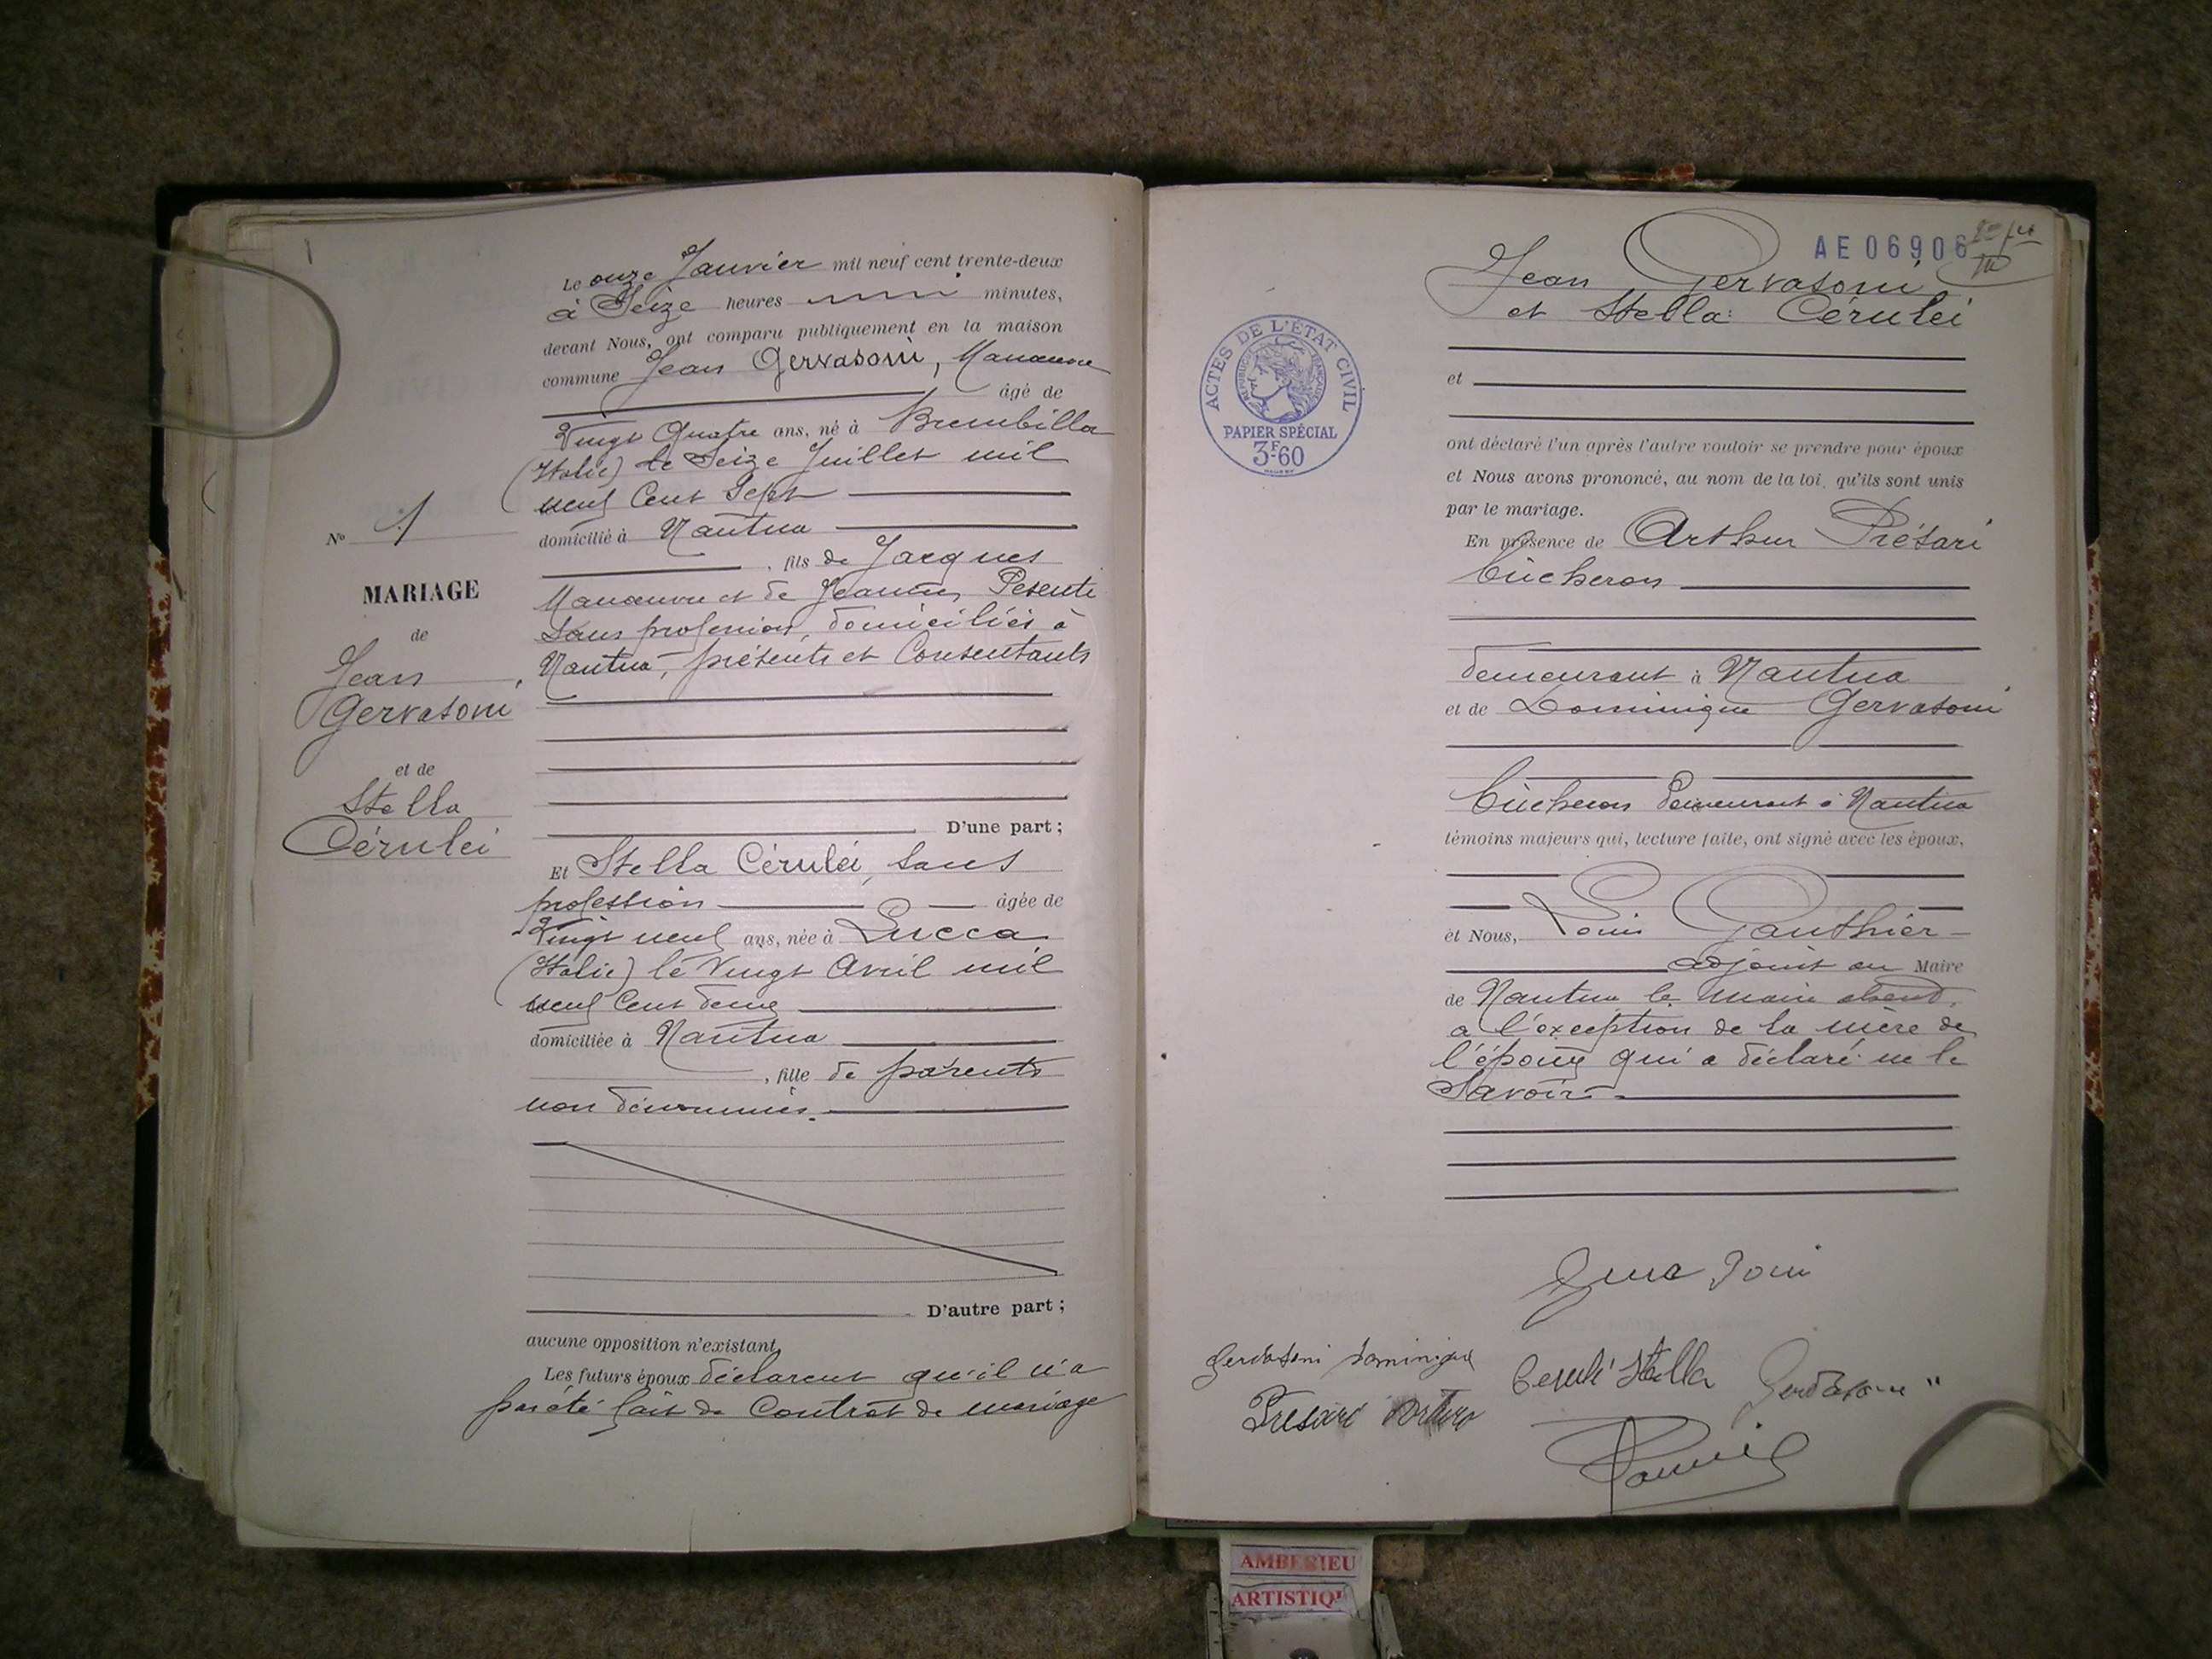 1
Le onze Janvier mil neuf cent trente-deux
à Seize heures minutes,
devant Nous, ont comparu publiquement en la maison
commune Jean Gervasoni, Manœuvre
âgé de
Vingt Quatre ans, né à Brembilla
(Italie) le Seize Juillet mil
neuf Cent Sept
domicilié à Nantua
, fils de Jacques
Manœuvre et de Jeanne Pesenti
Sans profession, domiciliés à
Nantua, présents et Consentants
D'une part ;
Et Stella Céruléi, sans
profession âgée de
Vingt neuf ans, née à Lucca
(Italie) le Vingt Avril mil
neuf Cent deux
domiciliée à Nantua
, fille de parents
non dénommés.
D'autre part ;
aucune opposition n'existant,
Les futurs époux déclarent qu'il n'a
pas été fait de Contrat de mariage
N° 1
MARIAGE
de
Jean
Gervasoni
et de
Stella
Céruléi
AE 06906
Jean Gervasoni
et Stella Céruléi
et
ont déclaré l'un après l'autre vouloir se prendre pour époux
et Nous avons prononcé, au nom de la loi, qu'ils sont unis
par le mariage.
En présence de Arthur Présari
bûcheron
demeurant à Nantua
et de Dominique Gervasoni
bûcheron demeurant à Nantua
témoins majeurs qui, lecture faite, ont signé avec les époux,
et Nous, Louis Gauthier
adjoint au Maire
de Nantua le Maire absent.
a l'exception de la mère de
l'époux qui a déclaré ne le
Savoir.
Gervasoni Dominique
Stella
Presari Arturo
ACTES DE L'ÉTAT CIVIL
RÉPUBLIQUE FRANÇAISE
PAPIER SPÉCIAL
3F60
AMBERIEU
ARTISTIQ